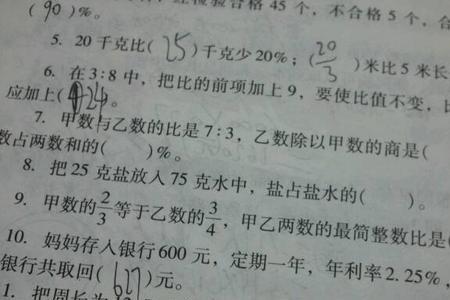 (90)%。 检验合格 45 个，不合格 5 个，合
5. 20 千克比(25)千克少20%；(20/3)米比 5 米长
6. 在 3∶8 中，把比的前项加上 9，要使比值不变，比
应加上(24。
7. 甲数与乙数的比是 7∶3，乙数除以甲数的商是(
数占两数和的( )%。
8. 把 25 克盐放入 75 克水中，盐占盐水的( )。
9. 甲数的2/3等于乙数的3/4，甲乙两数的最简整数比是(
10. 妈妈存入银行 600 元，定期一年，年利率 2.25%，
银行共取回(627)元。
1. 把周长为